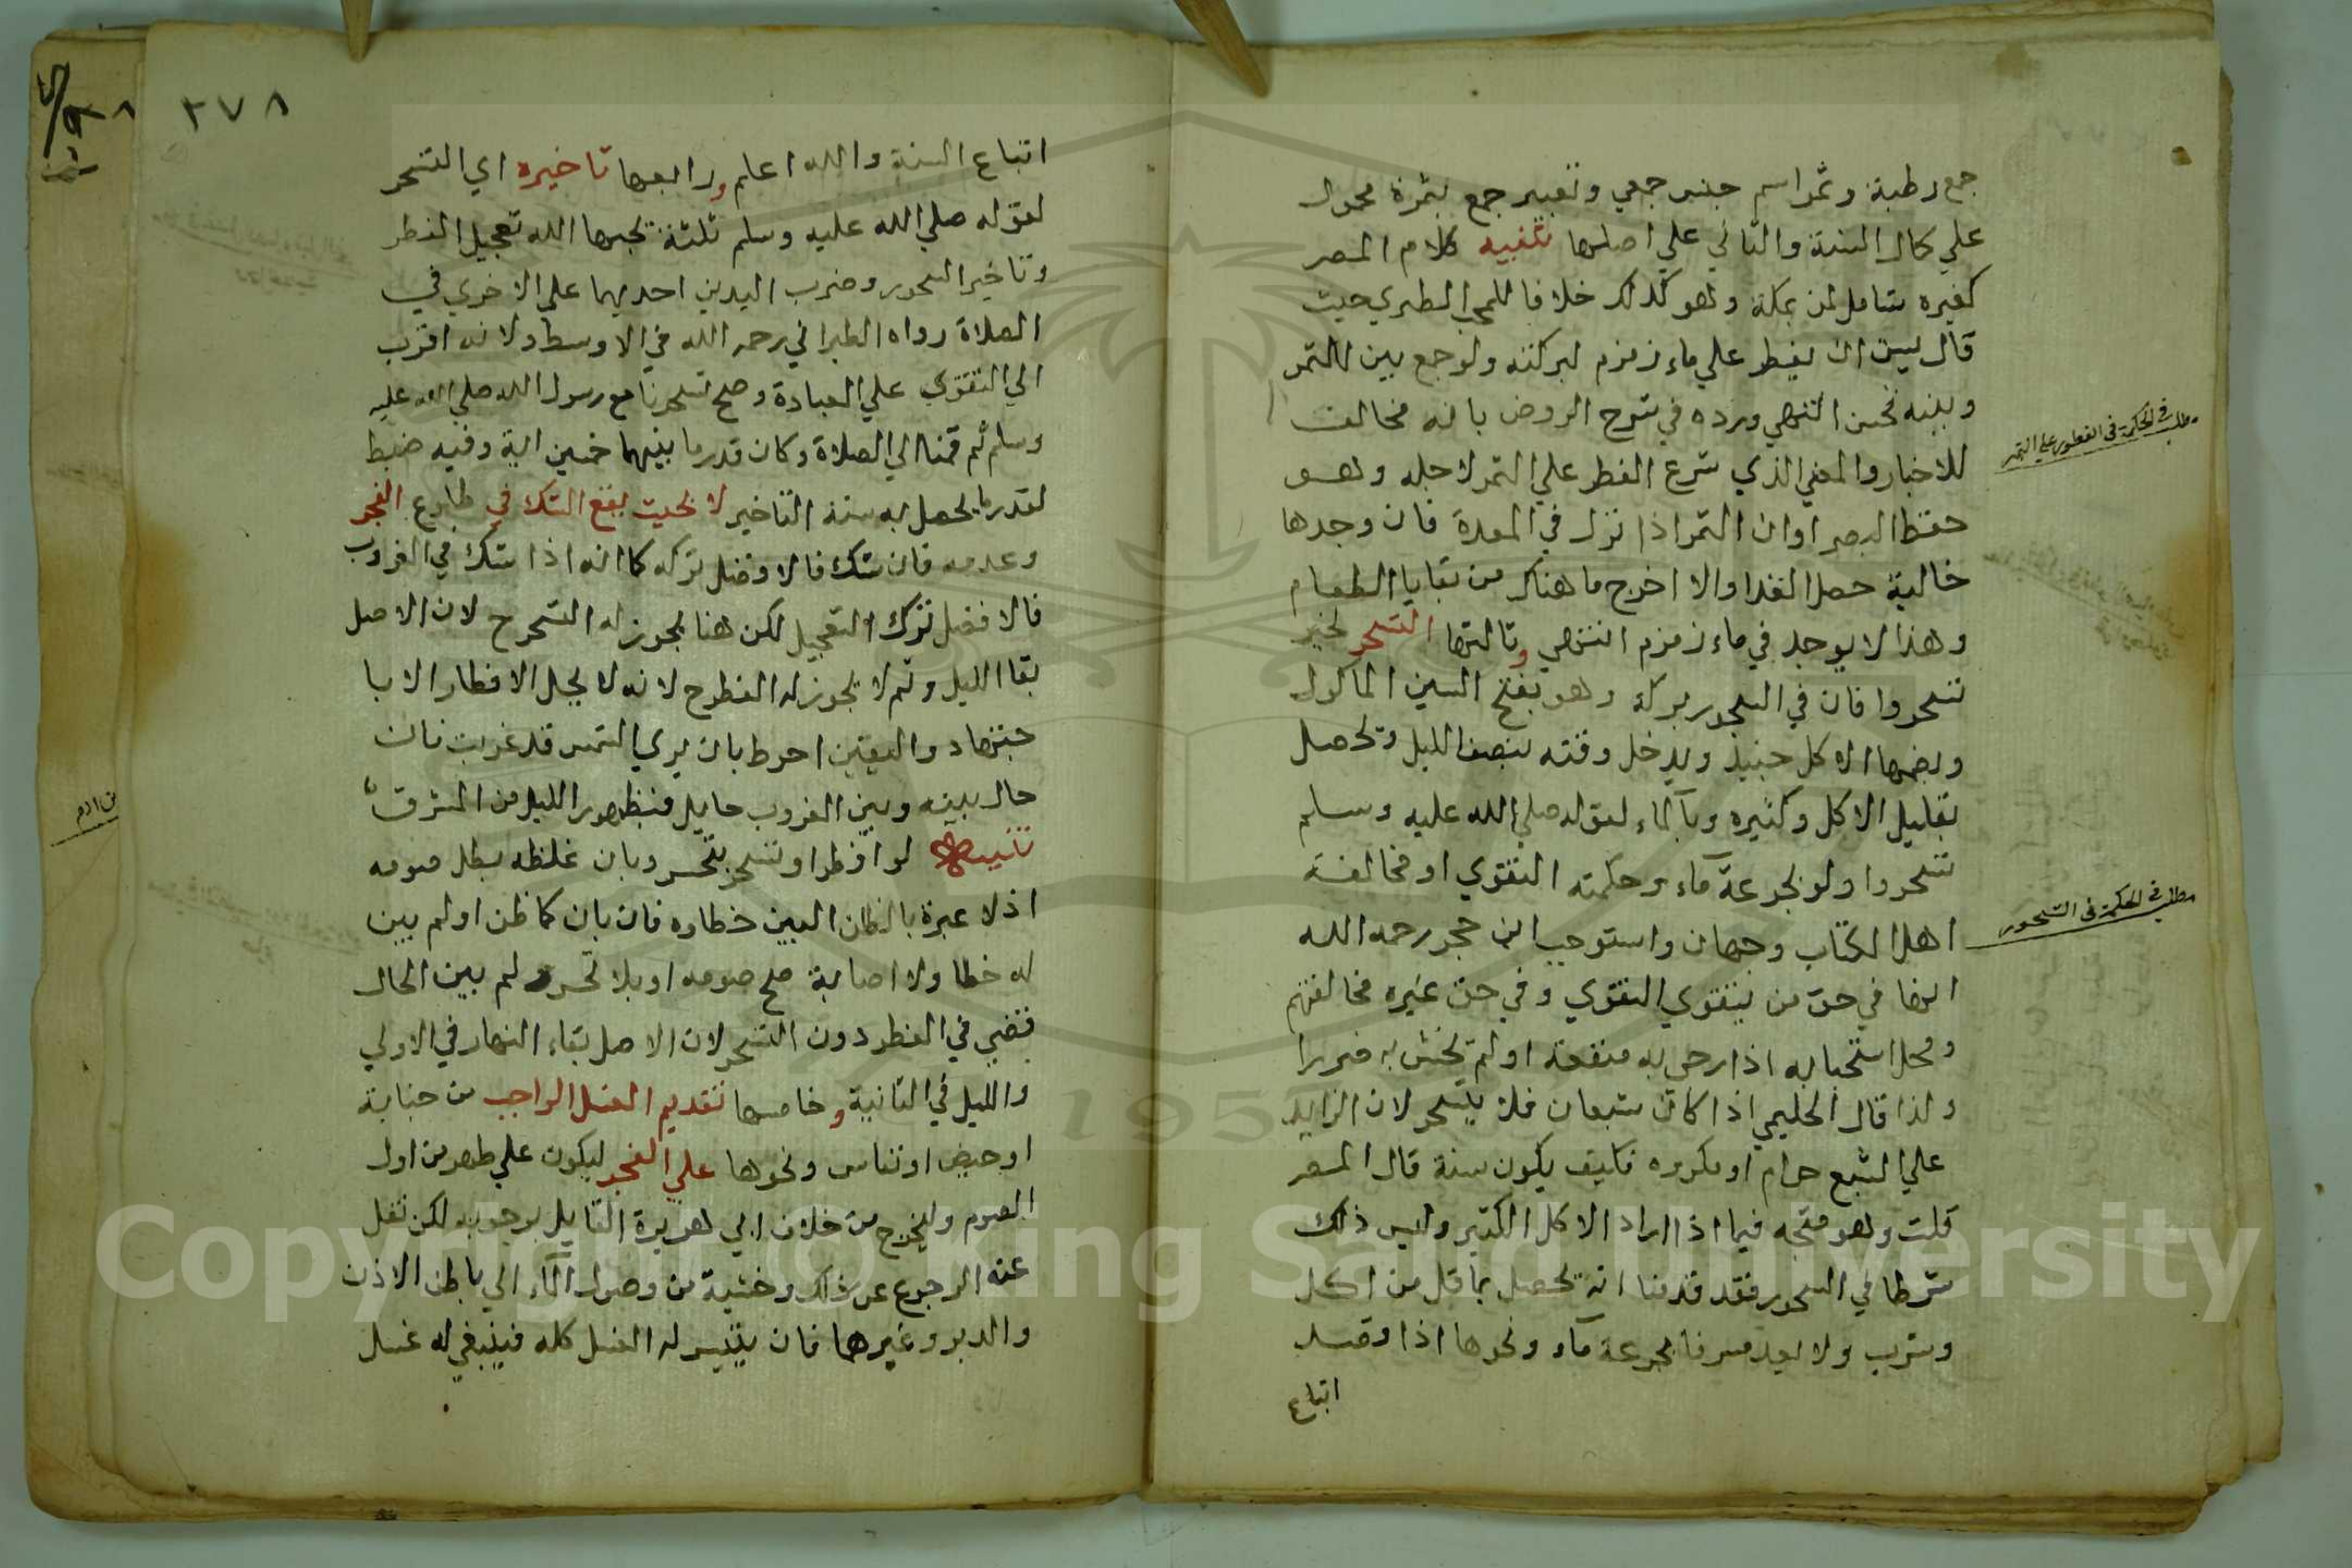 جمع رطبة وتمر اسم جنس جمعي وتعبير جمع بتمرة محمول
علي كمال السنة والثاني علي اصلها تنبيه كلام المصر
كغيره شامل لمن بمكة وهو كذلك خلافا للمحب الطبري حيث
قال يسن ان يفطر علي ماء زمزم لبركته ولو جمع بين التمر
وبينه فحسن انتهي ورده في شرح الروض بانه مخالف
للاخبار والمعني الذي شرع الفطر علي التمر لاجله وهو
حفظ البصر او ان التمر اذا نزل في المعدة فان وجدها
خالية حصل الغذا والا اخرج ما هناك من بقايا الطعام
وهذا لا يوجد في ماء زمزم انتهي وثالثها التسحر لخبر
تسحروا فان في السحور بركة وهو بفتح السين الماكول
وبضمها الاكل حينيذ ويدخل وقته بنصف الليل وتحصل
بقليل الاكل وكثيره وبالماء لقوله صلي الله عليه وسلم
تسحروا ولو بجرعة ماء وحكمته التقوي او مخالفة
اهل الكتاب وجهان واستوجب ابن حجر رحمه الله
انها في حق من يتقوي التقوي وفي حق غيره مخالفتهم
ومحل استحبابه اذا رجي به منفعة او لم يخش به ضررا
ولذا قال الحليمي اذا كان شبعان فلا يتسحر لان الزايد
علي الشبع حرام او مكروه فكيف يكون سنة قال المصر
قلت وهو متجه فيما اذا اراد الاكل الكثير وليس ذلك
شرطا في السحور فقد قدمنا انه يحصل باقل من اكل
وشرب ولا يعد مسرفا بجرعة ماء ونحوها اذا قصد
اتباع
مطلب في الحكمة في الفطور علي التمر
مطلب في الحكمة في السحور
٢٧٨
اتباع السنة والله اعلم ورابعها تاخيره اي التسحر
لقوله صلي الله عليه وسلم ثلثة يحبها الله تعجيل الفطر
وتاخير السحور وضرب اليدين احديهما علي الاخري في
الصلاة رواه الطبراني رحمه الله في الاوسط ولانه اقرب
الي التقوي علي العبادة وصح تسحرنا مع رسول الله صلي الله عليه
وسلم ثم قمنا الي الصلاة وكان قدر ما بينهما خمسين اية وفيه ضبط
لقدر ما يحصل به سنة التاخير لا بحيث يقع الشك في طلوع الفجر
وعدمه فان شك فالافضل تركه كما انه اذا شك في الغروب
فالافضل ترك التعجيل لكن هنا يجوز له التسحر ح لان الاصل
بقا الليل وثم لا يجوز له الفطر ح لانه لا يحل الافطار الا با
جتهاد واليقين احوط بان يري الشمس قد غربت فان
حال بينه وبين الغروب حايل فبظهور الليل من المشرق
تنبيه لو افطر او تسحر بتحر وبان غلطه بطل صومه
اذ لا عبرة بالظن البين خطاوه فان بان كما ظن او لم يبن
له خطا ولا اصابة صح صومه او بلا تحر ولم يبن الحال
فتضي في الفطر دون التسحر لان الاصل بقاء النهار في الاولي
والليل في الثانية وخامسها تقديم الغسل الواجب من جنابة
او حيض او نفاس ونحوها علي الفجر ليكون علي طهر من اول
الصوم وليخرج من خلاف ابي هريرة القايل بوجوبه لكن نقل
عنه الرجوع عن ذلك وخشية من وصول الماء الي باطن الاذن
والدبر وغيرهما فان يتيسر له الغسل كله فينبغي له غسل